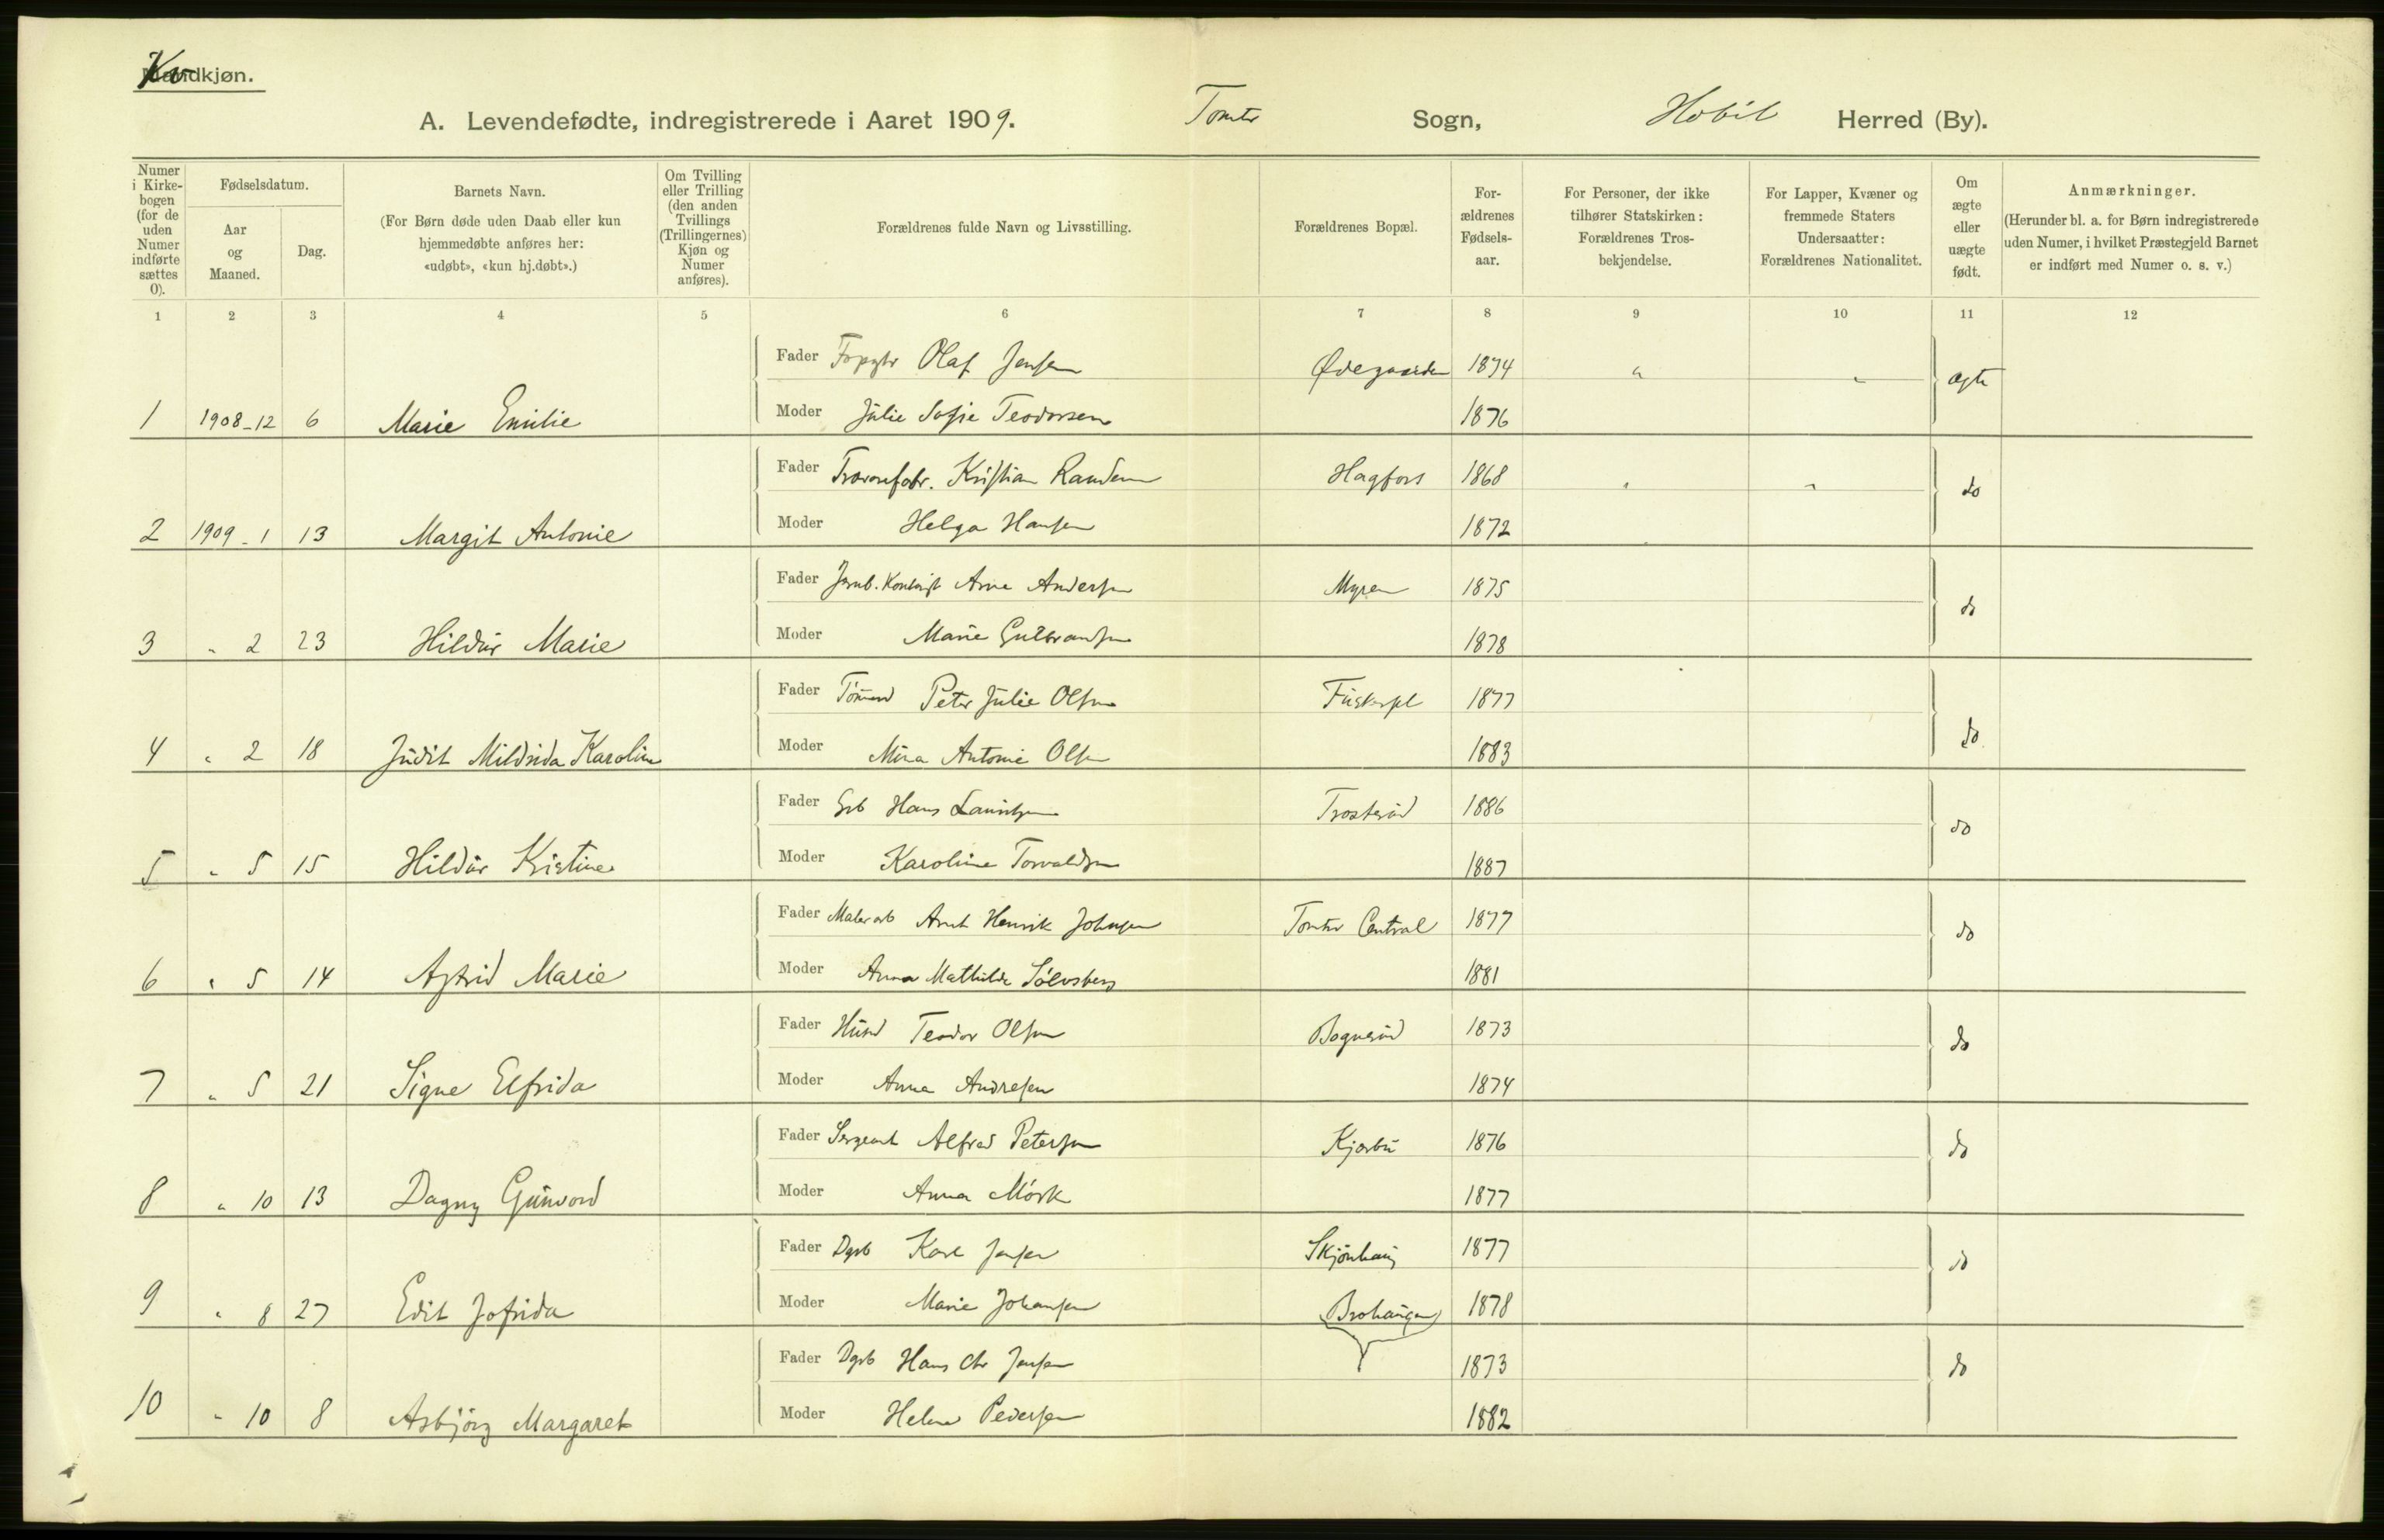 Kv
Mandkjøn.
A. Levendefødte, indregistrerede i Aaret 1909. Tomter Sogn, Hobøl Herred (By).
Numer i Kirkebogen (for de uden Numer indførte sættes 0).
Fødselsdatum.
Aar og Maaned.
Dag.
Barnets Navn.
(For Børn døde uden Daab eller kun hjemmedøbte anføres her: «udøbt», «kun hj.døbt».)
Om Tvilling eller Trilling (den anden Tvillings (Trillingernes) Kjøn og Numer anføres).
Forældrenes fulde Navn og Livsstilling.
Forældrenes Bopæl.
Forældrenes Fødselsaar.
For Personer, der ikke tilhører Statskirken: Forældrenes Trosbekjendelse.
For Lapper, Kvæner og fremmede Staters Undersaatter: Forældrenes Nationalitet.
Om ægte eller uægte født.
Anmærkninger.
(Herunder bl. a. for Børn indregistrerede uden Numer, i hvilket Præstegjeld Barnet er indført med Numer o. s. v.)
1 2 3 4 5 6 7 8 9 10 11 12
Fader Olaf Jensen Ødegaarden 1874 " " ægte
1 1908-12 6 Marie Emilie Moder Julie Sofie Teodorsen 1876
Fader Kristian Randem Hagfors 1868 " " do
2 1909-1 13 Margit Antonie Moder Helga Hansen 1872
Fader Arne Andersen Myren 1875 do
3 " 2 23 Hildur Marie Moder Marie Gulbrandsen 1878
Fader Peter Julie Olsen 1877 do
4 " 2 18 Judit Mildrida Karoline Moder Mina Antonie Olsen 1883
Fader Hans Lauritzen Trosterud 1886 do
5 " 5 15 Hildur Kristine Moder Karoline Torvaldsen 1887
Fader Malerarb Arnt Henrik Johnsen Tomter Central 1877 do
6 " 5 14 Astrid Marie Moder Anna Mathilde Sølvsberg 1881
Fader Teodor Olsen Bognerud 1873 do
7 " 5 21 Signe Elfrida Moder Anna Andresen 1874
Fader Sergeant Alfred Petersen Kjærbu 1876 do
8 " 10 13 Dagny Gunvord Moder Anna Mørk 1877
Fader Dgrb Karl Jensen Skjønhaug 1877 do
9 " 8 27 Edit Jofrida Moder Marie Johansen Brohaugen 1878
Fader Dgrb Hans Chr Jensen 1873 do
10 " 10 8 Asbjørg Margaret Moder Helene Pedersen 1882